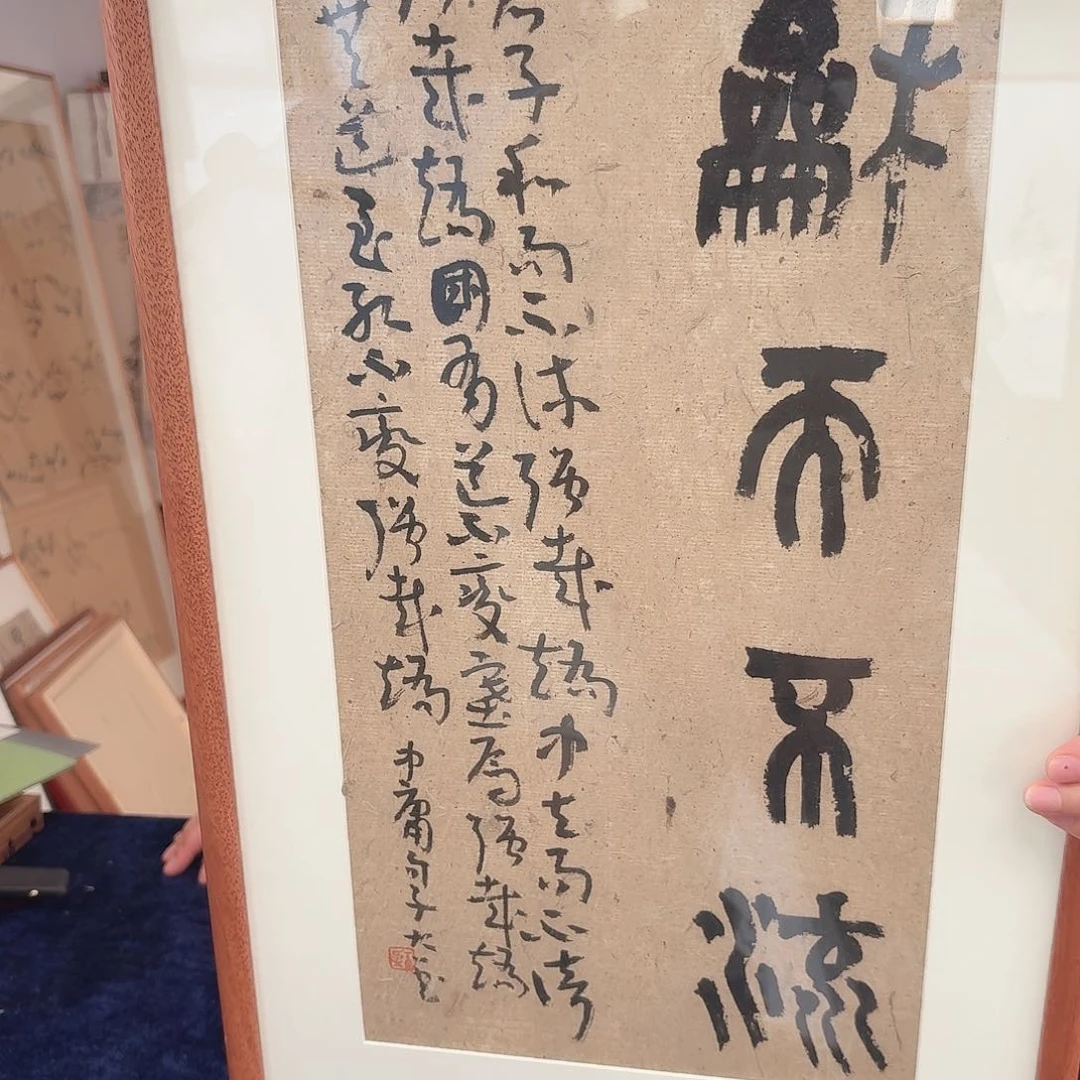 龢而不流
君子和而不流强哉矯中立而不倚
哉矯國有道不變塞焉强哉矯
無道至死不變强哉矯 中庸句